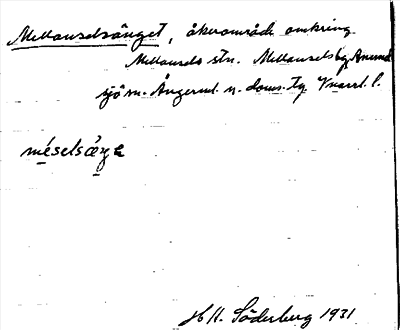 Mellanselsänget, åkerområde omkring
Mellansels stn. Mellanselsby, Anund
sjö sn. Ångerml. n. doms. tg Vnorrl. l.
méselsä̀ŋe
H H. Söderberg 1931